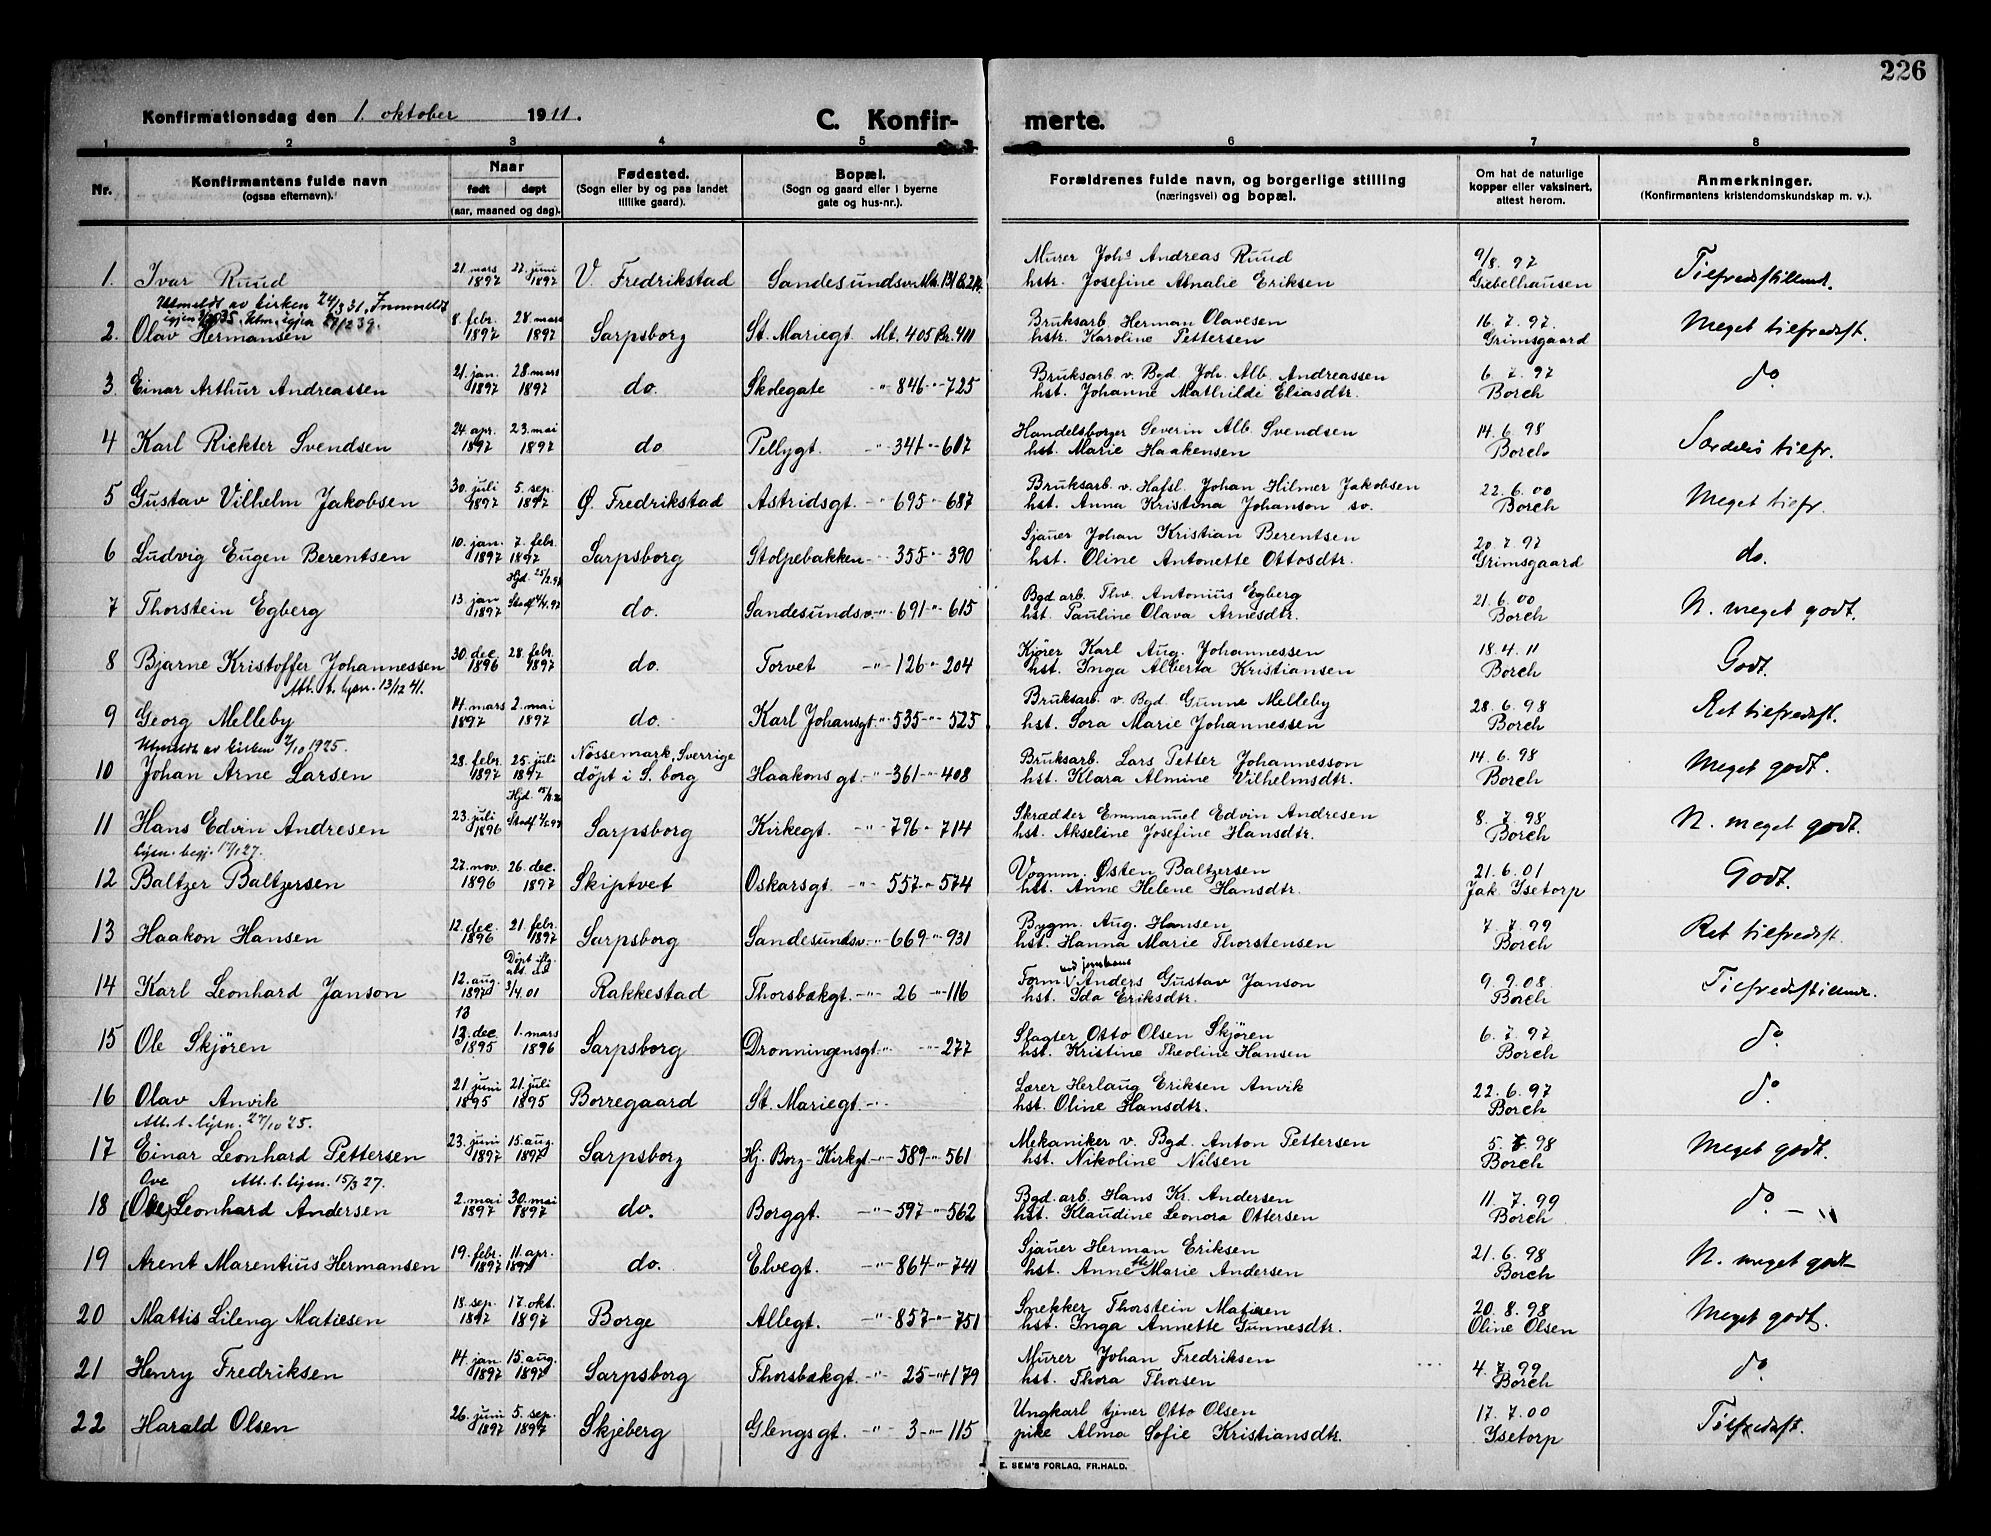 226
Konfirmationsdag den 1. oktober 1911.
C. Konfirmerte.
1 2 3 4 5 6 7 8
Nr.
Konfirmantens fulde navn
(ogsaa efternavn).
Naar
født døpt
(aar, maaned og dag).
Fødested.
(Sogn eller by og paa landet
tillike gaard).
Bopæl.
(Sogn og gaard eller i byerne
gate og hus-nr.).
Forældrenes fulde navn, og borgerlige stilling
(næringsvei) og bopæl.
Om hat de naturlige
kopper eller vaksinert,
attest herom.
Anmerkninger.
(Konfirmantens kristendomskundskap m. v.)
1. Ivar Ruud 21. mars 1897 27. juni 1897 V. Fredrikstad Sandesundsv. Mt. 131 Br. 2
Murer Johs Andreas Ruud 9/8. 97 Tilfredsstillend.
hstr. Josefine Amalie Eriksen Giebelhausen
Utmeldt av kirken 24/3 31. Innmeldt
igjen 35. Utm. igjen 27/2 39.
2. Olav Hermansen 8. febr. 1897 28. mars 1897 Sarpsborg St. Mariegt. Mt. 405 Br. 411
Bruksarb. Herman Olavesen 16. 7. 97. Meget tilfredsst.
hstr. Karoline Pettersen Grimsgaard
3. Einar Arthur Andreassen 21. jan. 1897 28. mars 1897 do. Skolegate -"- 846 -"- 725
Bruksarb. v. Bgd. Joh. Alb. Andreassen 6. 7. 97 do
hst. Johanne Mathilde Eliasdtr. Borch
4 Karl Rickter Svendsen 24. apr. 1897 23. mai 1897 do Pellygt. -"- 341 -"- 607
Handelsborger Severin Alb. Svendsen 14. 6. 98 Særdeles tilfr.
hst. Marie Haakensen Borch
5 Gustav Vilhelm Jakobsen 30. juli 1897 5. sep. 1897 Ø. Fredrikstad Astridsgt. -"- 695 -"- 687
Bruksarb. v. Hafsl. Johan Hilmer Jakobsen 22. 6. 00 Meget tilfr.
hst. Anna Kristina Johanson sv. Borch
6 Ludvig Eugen Berentsen 10. jan. 1897 7. febr. 1897 Sarpsborg Stolpebakken -"- 355 -"- 390
Sjauer Johan Kristian Berentsen 20. 7. 97 do.
hst. Oline Antonette Ottosdtr. Grimsgaard
7 Thorstein Egberg 13. jan 1897 Hjd. 25/2.97 Stadf. 4/4.97 do. Sandesundsv. -"- 691 -"- 615
Bgd arb. Thv. Antonius Egberg 21. 6. 00 N. meget godt.
hst. Pauline Olava Arnesdtr. Borch
8 Bjarne Kristoffer Johannessen 30. dec. 1896 28. febr. 1897 do. Torvet -"- 126 -"- 204
Kjører Karl Aug. Johannessen 18. 4. 11 Godt.
hst. Inga Alberta Kristiansen Borch
Att. t. lysn. 13/12 41.
9 Georg Melleby 14. mars 1897 2. mai 1897 do. Karl Johansgt. -"- 535 -"- 525
Bruksarb. v. Bgd. Gunne Melleby 28. 6. 98 Ret tilfredsst.
hst. Sora Marie Johannessen Borch
Utmeldt av kirken 2/10 1925.
10 Johan Arne Larsen 28. febr. 1897 25. juli 1897 Nössemark, Sverrige døpt i S. borg Haakons gt. -"- 361 -"- 408
Bruksarb. Lars Petter Johannesson 14. 6. 98 Meget godt.
hst. Klara Almine Vilhelmsdtr. Borch
11 Hans Edvin Andresen 23. juli 1896 Hjd. Stadf. Sarpsborg Kirkegt. -"- 796 -"- 714
Skrædder Emmanuel Edvin Andresen 8. 7. 98 N. meget godt.
hst. Akseline Josefine Hansdtr. Borch
lysn. begj. 17/1 27.
12 Baltzer Baltzersen 27. nov. 1896 26. dec. 1897 Skiptvet Oskarsgt. -"- 557 -"- 574
Vognm. Østen Baltzersen 21. 6. 01 Godt.
hst. Anne Helene Hansdtr. Jak. Isetorp
13 Haakon Hansen 12. dec. 1896 21. febr. 1897 Sarpsborg Sandesundsv. -"- 669 -"- 931
Bygm. Aug. Hansen 7. 7. 99 Ret tilfredsst.
hst. Hanna Marie Thorstensen Borch
14 Karl Leonhard Janson 12. aug. 1897 Døpt 3/4.01 Rakkestad Thorsbækgt. -"- 26 -"- 116
Form. Anders Gustav Janson 9. 9. 08 Tilfredsstillende.
hst. Ida Eriksdtr. Borch
15 Ole Skjören 13 13. dec. 1895 1. mars 1896 Sarpsborg Dronningensgt. -"- -"- 277
Slagter Otto Olsen Skjören 6. 7. 97 do
hst. Kristine Theoline Hansen Borch
16 Olav Anvik 21. juni 1895 21. juli 1895 Borregaard St. Mariegt. -"-
Lærer Herlaug Eriksen Anvik 22. 6. 97 do
hst. Oline Hansdtr. Borch
Att. t. lysn. 27/10 25.
17 Einar Leonhard Pettersen 23. juni 1897 15. aug. 1897 Sarpsborg Hj. Borg- Kirkgt -"- 589 -"- 561
Mekaniker v. Bgd. Anton Pettersen 5. 7. 98 Meget godt.
hst. Nikoline Nilsen Borch
Ove Att. t. lysn. 15/3 27.
18 (Ole) Leonhard Andersen 2. mai 1897 30. mai 1897 do. Borggt. -"- 597 -"- 562
Bgd. arb. Hans Kr. Andersen 11. 7. 99 do - "
hst. Klaudine Leonora Ottersen Borch
19 Arent Marentius Hermansen 19. febr. 1897 11. apr. 1897 do. Elvegt. -"- 864 -"- 741
Sjauer Herman Eriksen 21. 6. 98 N. meget godt
hst. Annette Marie Andersen Borch
20 Mattis Lileng Matiesen 18. sep. 1897 17. okt. 1897 Borge Allegt. -"- 857 -"- 751
Snekker Thorstein Matiesen 20. 8. 98 Meget godt.
hst. Inga Annette Gunnesdtr. Oline Olsen
21 Henry Fredriksen 14. jan 1897 15. aug. 1897 Sarpsborg Thorsbækgt. -"- 25 -"- 179
Murer Johan Fredriksen 4. 7. 99 do
hst. Thora Thorsen Borch
22 Harald Olsen 26. juni 1897 5. sep. 1897 Skjeberg Glengsgt. -"- 3 -"- 115
Ungkarl tjener Otto Olsen 17. 7. 00 Tilfredsst.
pike Alma Sofie Kristiansdtr. Isetorp
E. SEM'S FORLAG, FR.HALD.